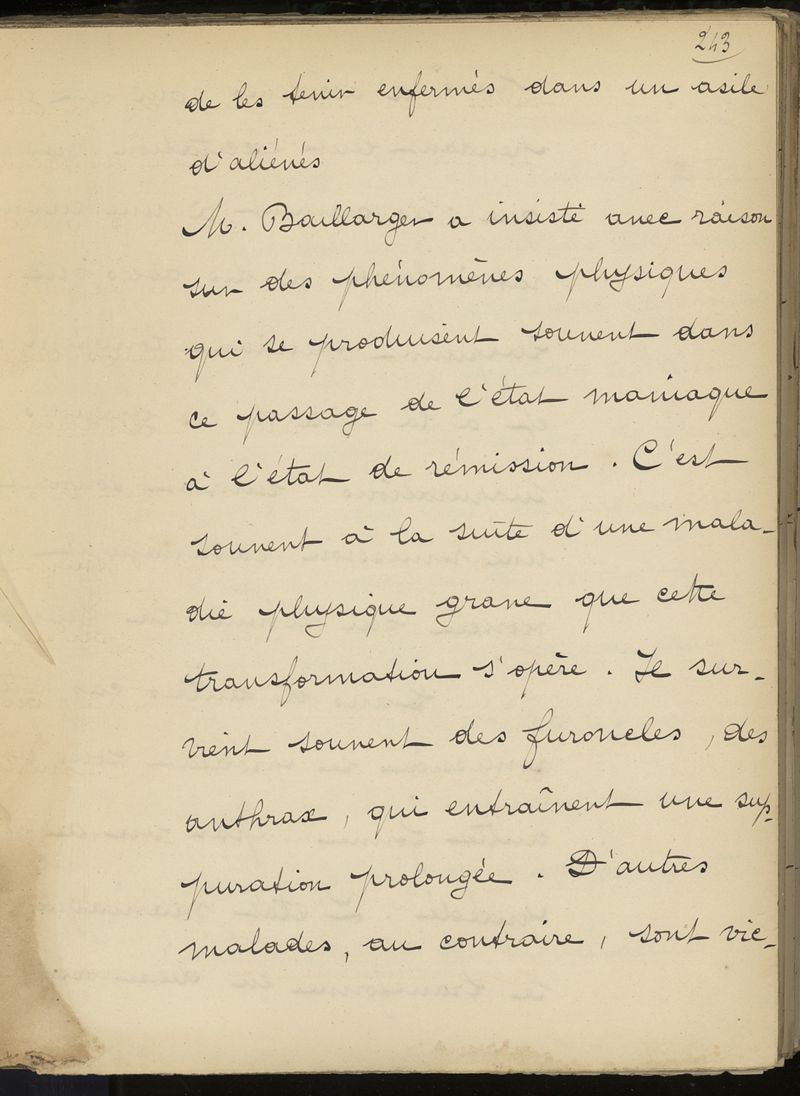 243
de les tenir enfermés dans un asile
d'aliénés
M. Baillarger a insisté avec raison
sur des phénomènes physiques
qui se produisent souvent dans
ce passage de l'état maniaque
à l'état de rémission. C'est
souvent à la suite d'une mala-
die physique grave que cette
transformation s'opère. Il sur-
vient souvent des furoncles, des
anthrax, qui entraînent une sup-
puration prolongée. D'autres
malades, au contraire, sont vic-